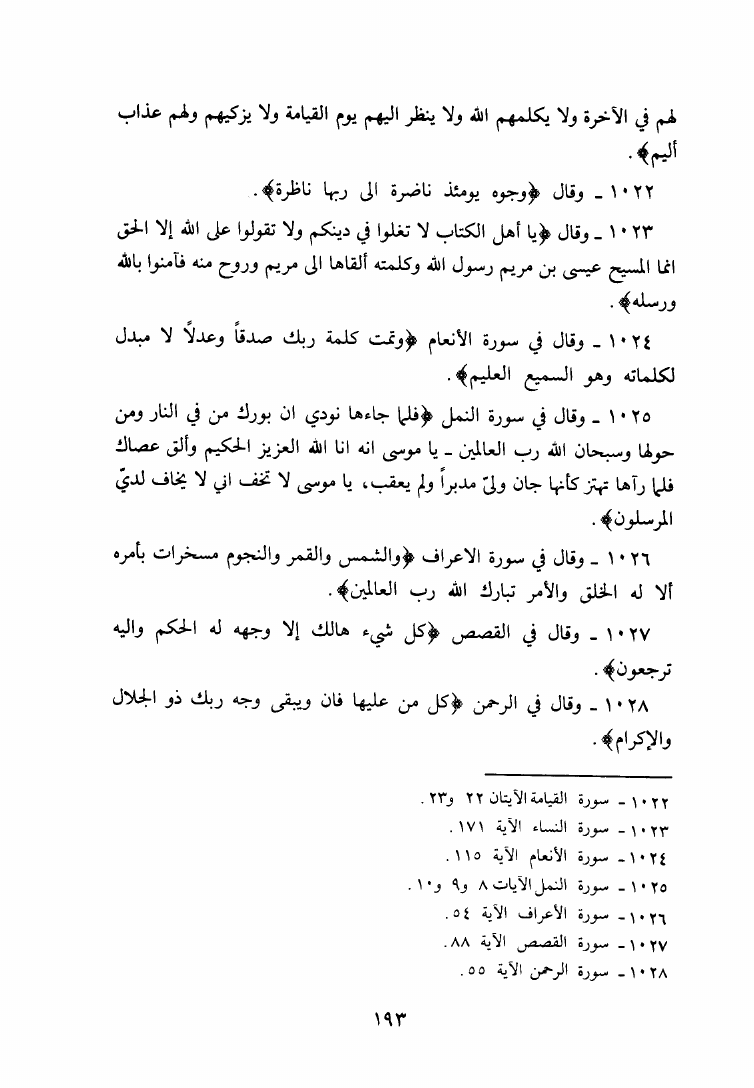 لهم في الآخرة ولا يكلمهم الله ولا ينظر اليهم يوم القيامة ولا يزكيهم ولهم عذاب
أليم﴾.
١٠٢٢ ـ وقال ﴿وجوه يومئذ ناضرة الى ربها ناظرة﴾.
١٠٢٣ ـ وقال ﴿يا أهل الكتاب لا تغلوا في دينكم ولا تقولوا على الله إلا الحق
انما المسيح عيسى بن مريم رسول الله وكلمته ألقاها الى مريم وروح منه فآمنوا بالله
ورسله﴾.
١٠٢٤ ـ وقال في سورة الأنعام ﴿وتمت كلمة ربك صدقاً وعدلاً لا مبدل
لكلماته وهو السميع العليم﴾.
١٠٢٥ ـ وقال في سورة النمل ﴿فلما جاءها نودي ان بورك من في النار ومن
حولها وسبحان الله رب العالمين ـ يا موسى انه انا الله العزيز الحكيم وألق عصاك
فلما رآها تهتز كأنها جان ولىّ مدبراً ولم يعقب، يا موسى لا تخف اني لا يخاف لديّ
المرسلون﴾.
١٠٢٦ ـ وقال في سورة الاعراف ﴿والشمس والقمر والنجوم مسخرات بأمره
ألا له الخلق والأمر تبارك الله رب العالمين﴾.
١٠٢٧ ـ وقال في القصص ﴿كل شيء هالك إلا وجهه له الحكم واليه
ترجعون﴾.
١٠٢٨ ـ وقال في الرحمن ﴿كل من عليها فان ويبقى وجه ربك ذو الجلال
والإكرام﴾.
١٠٢٢ ـ سورة القيامة الآيتان ٢٢ و٢٣.
١٠٢٣ ـ سورة النساء الآية ١٧١.
١٠٢٤ ـ سورة الأنعام الآية ١١٥.
١٠٢٥ ـ سورة النمل الآيات ٨ و٩ و١٠.
١٠٢٦ ـ سورة الأعراف الآية ٥٤.
١٠٢٧ ـ سورة القصص الآية ٨٨.
١٠٢٨ ـ سورة الرحمن الآية ٥٥.
١٩٣